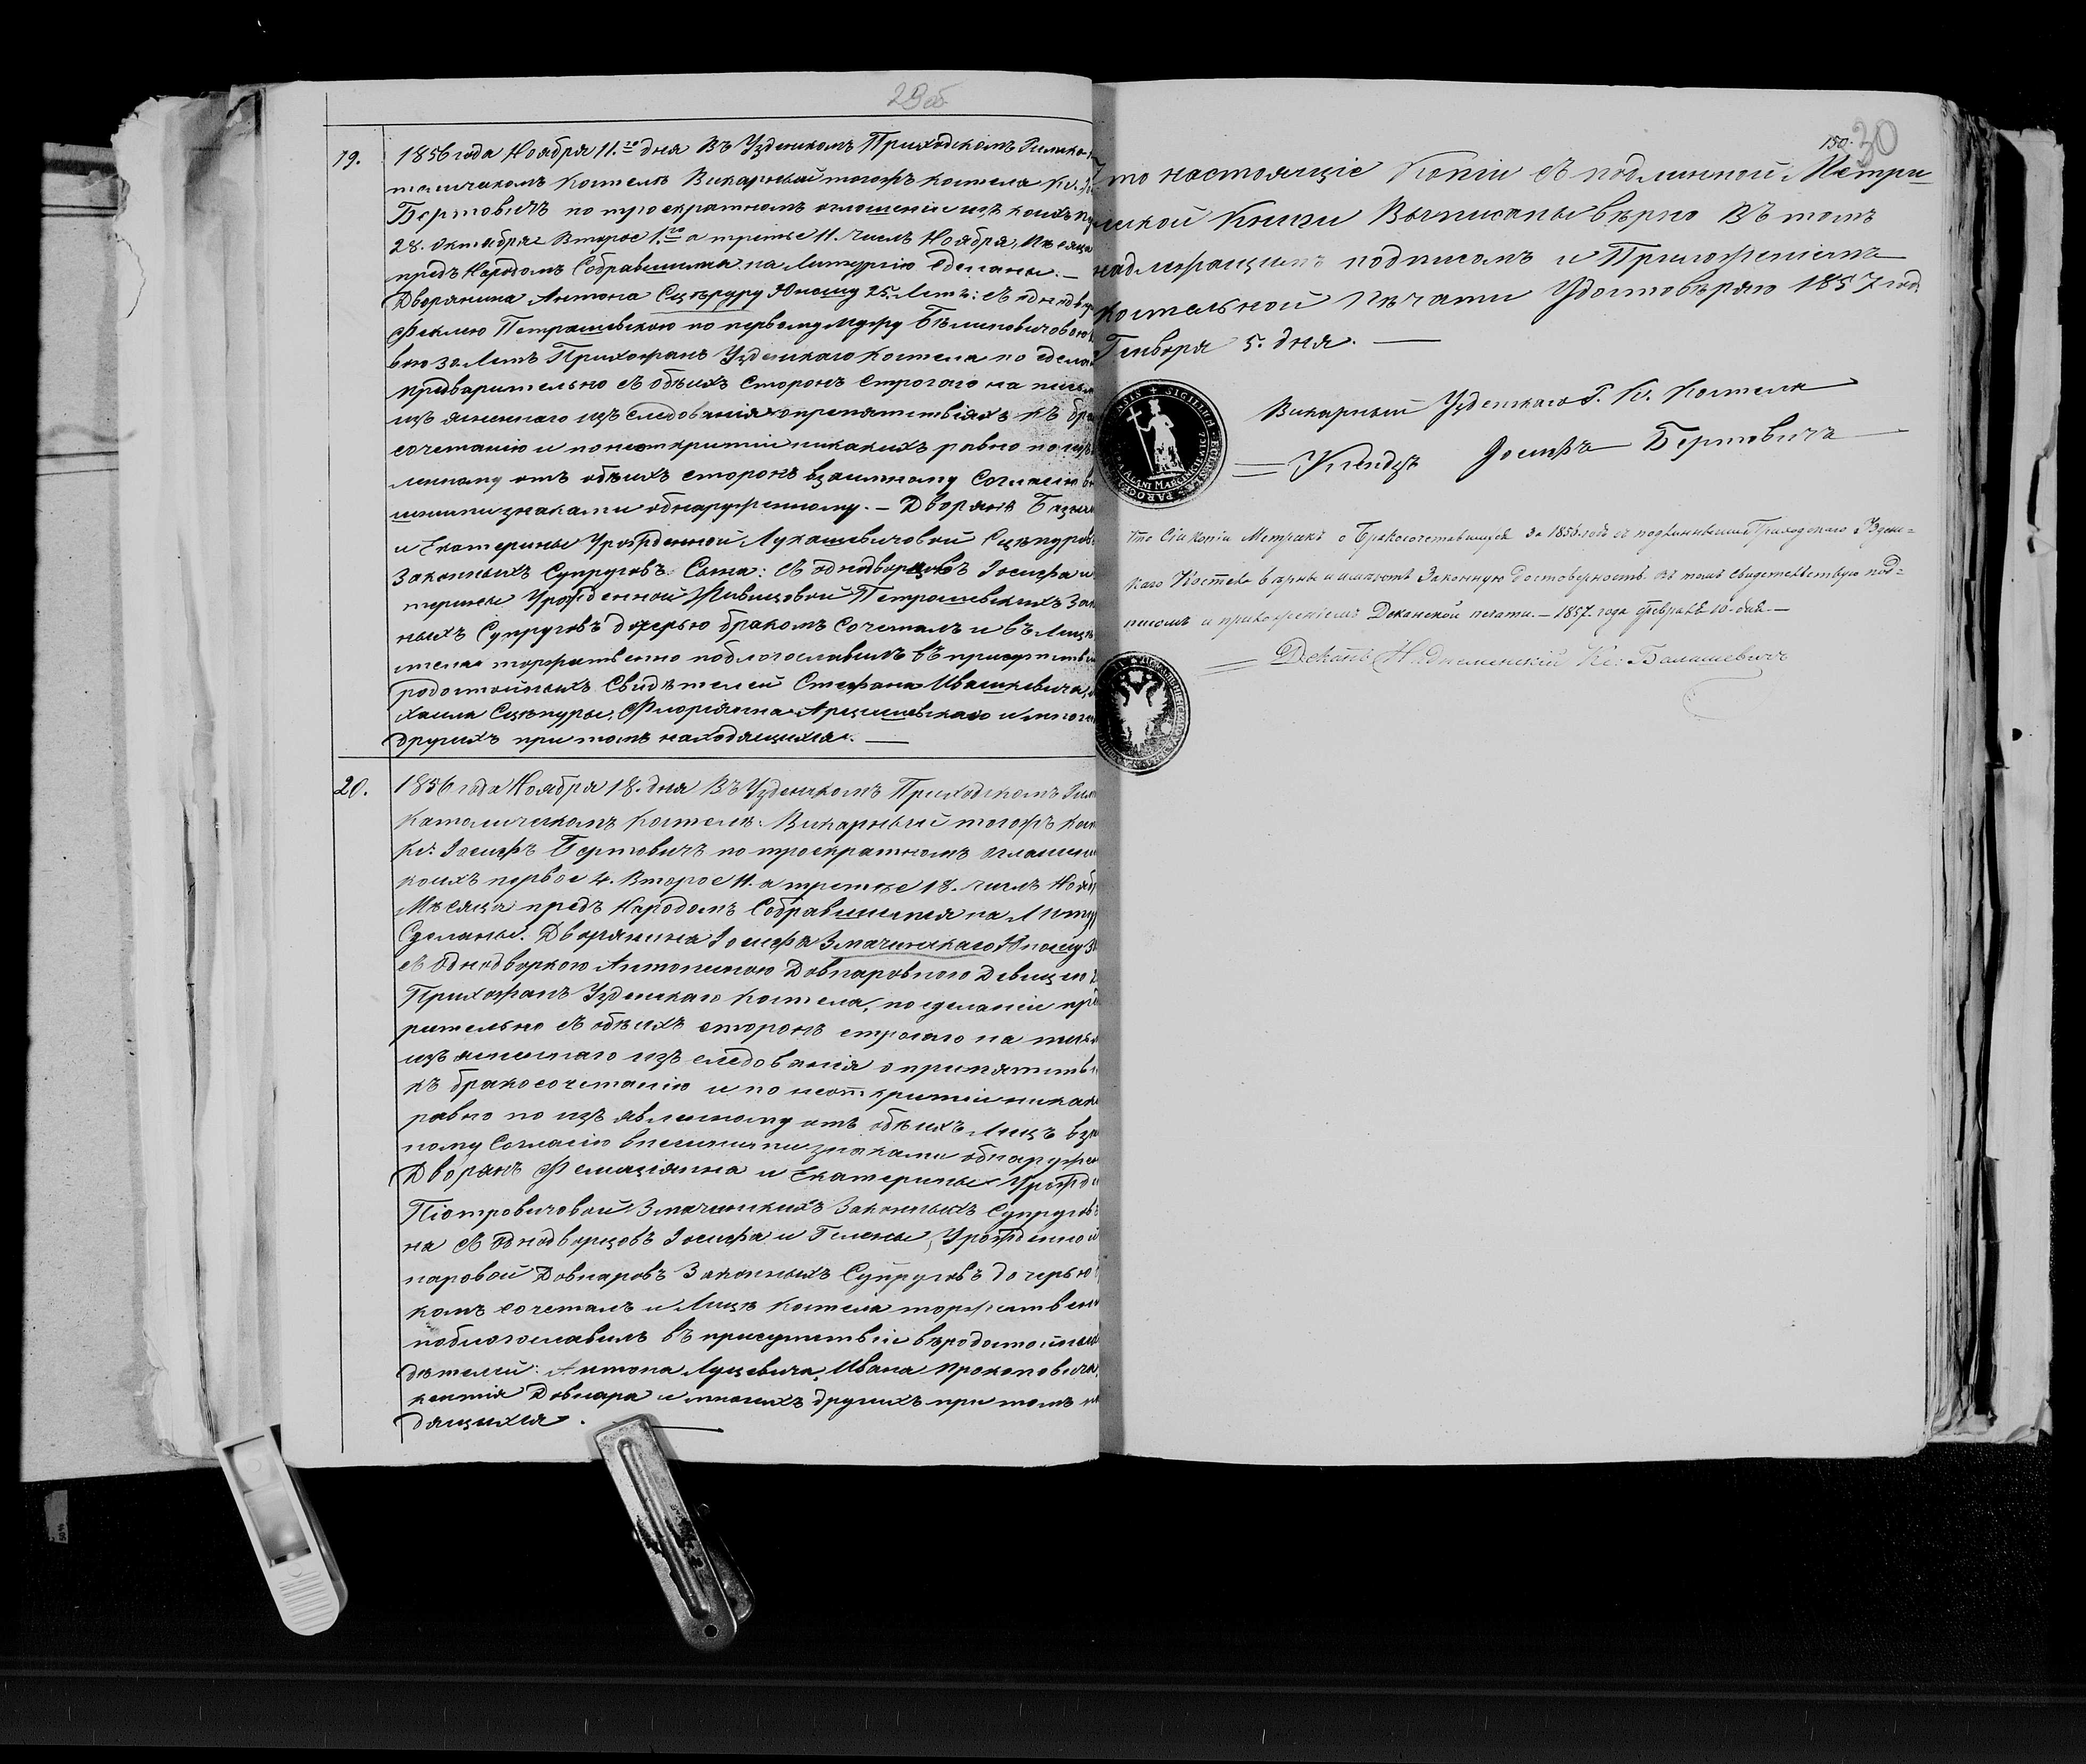 29об
19.
1856 года Ноября 11.го дня въ Узденскомъ Приходскомъ Римско-
толическомъ Костелѣ Викарный тогожъ Костела Кс.
Бертовичъ по троекратномъ оглашеніи изъ коихъ
28. Октября Второе 1.го а третье 11. числъ Ноября, Мѣсяца
предъ Народомъ Собравшимся на Литургію сдѣланы. —
Дворянина Антона Сцѣпуру Юношу 25. Лѣтъ: съ однодвор
Феклею Петрашевскою по первому мужу Бѣлиновичовою
вою 30 Лѣтъ Прихожанъ Узденскаго Костела по сдела
предварительно съ обѣихъ сторонъ строгаго на письм
изъясненнаго изъследованія о препятствіяхъ къ бра
сочетанію и по неоткритіи никакихъ равно по изъ
лнному отъ обѣихъ сторонъ взаимному Согласію вн
шними знаками обнаруженному. — Дворянъ
и Екатерины Урожденной Лукашевичовой Сцѣпуров
Законныхъ Супруговъ Сына: съ однодворцовъ Іосифа и
терины Урожденной Петрашевскихъ Зак
ныхъ Супруговъ дочерью бракомъ сочеталъ и въ Лицѣ
стела торжественно поблогославилъ въ присутствіи
родостойныхъ Свидѣтелей Стефана Ивашкевича,
хаила Сцѣпуры, Флоріяна Арцишевскаго и многи
другихъ при томъ находящихся. —
20.
1856 года Ноября 18. дня въ Узденскомъ Приходскомъ Рим
Католическомъ Костелѣ: Викарный тогожъ Кос
Кс: Іосифъ Бертовичъ по троекратномъ оглашені
коихъ первое 4. второе 11. а третье 18. числъ Нояб
Мѣсяца предъ Народомъ Собравшимся на Литур
Сделаны. Дворянина Іосифа Змачинскаго Юношу
съ Однодворкою Антониною Довнаровною Девицею
Прихожанъ Узденскаго Костела, по сделаніи пред
рительно съ обѣихъ сторонъ строгаго на письм
изъясненнаго изъследованія о припятстві
къ бракосочетанію и по неоткритіи никак
равно по изъявленному отъ обѣихъ Лицъ вза
ному Согласію внешними знаками обнаружен
Дворянъ Фелиціяна и Екатерины Урожде
Піотровичовой Змачинскихъ Законныхъ Супругов
на съ Однодворцовъ Іосифа и Гелены, Урожденной
наровой Довнаровъ Законныхъ Супруговъ дочерью
комъ сочеталъ и Лицѣ Костела торжественн
поблогославилъ въ присутствіи вѣродостойных
дѣтелей: Антона Луцевича, Ивана Прокоповича,
кентія Довнара и многихъ другихъ при томъ на
дящихся.
150. 30
то настоящіе Копіи съ подлинной Метри-
ческой Книги Выписаны верно Въ томъ
надлежащимъ подписомъ и Приложеніемъ
Костельной Печати Удостовѣряю 1857 год.
Генворя 5. дня. —
Викарный Узденскаго Р. К. Костела
Ксендзъ Іосифъ Бертовичъ
Что Сіи Копіи Метрикъ о Бракосочетавшихся за 1856. годъ съ подлинными Приходскаго Узден=
скаго Костела вѣрны и имѣютъ Законную достоверность въ томъ свидетельствую под=
писомъ и приложеніемъ Деканской печати. — 1857. года Февраля 10. дня. —
Деканъ Надиеменскій Кс: Балашевичъ